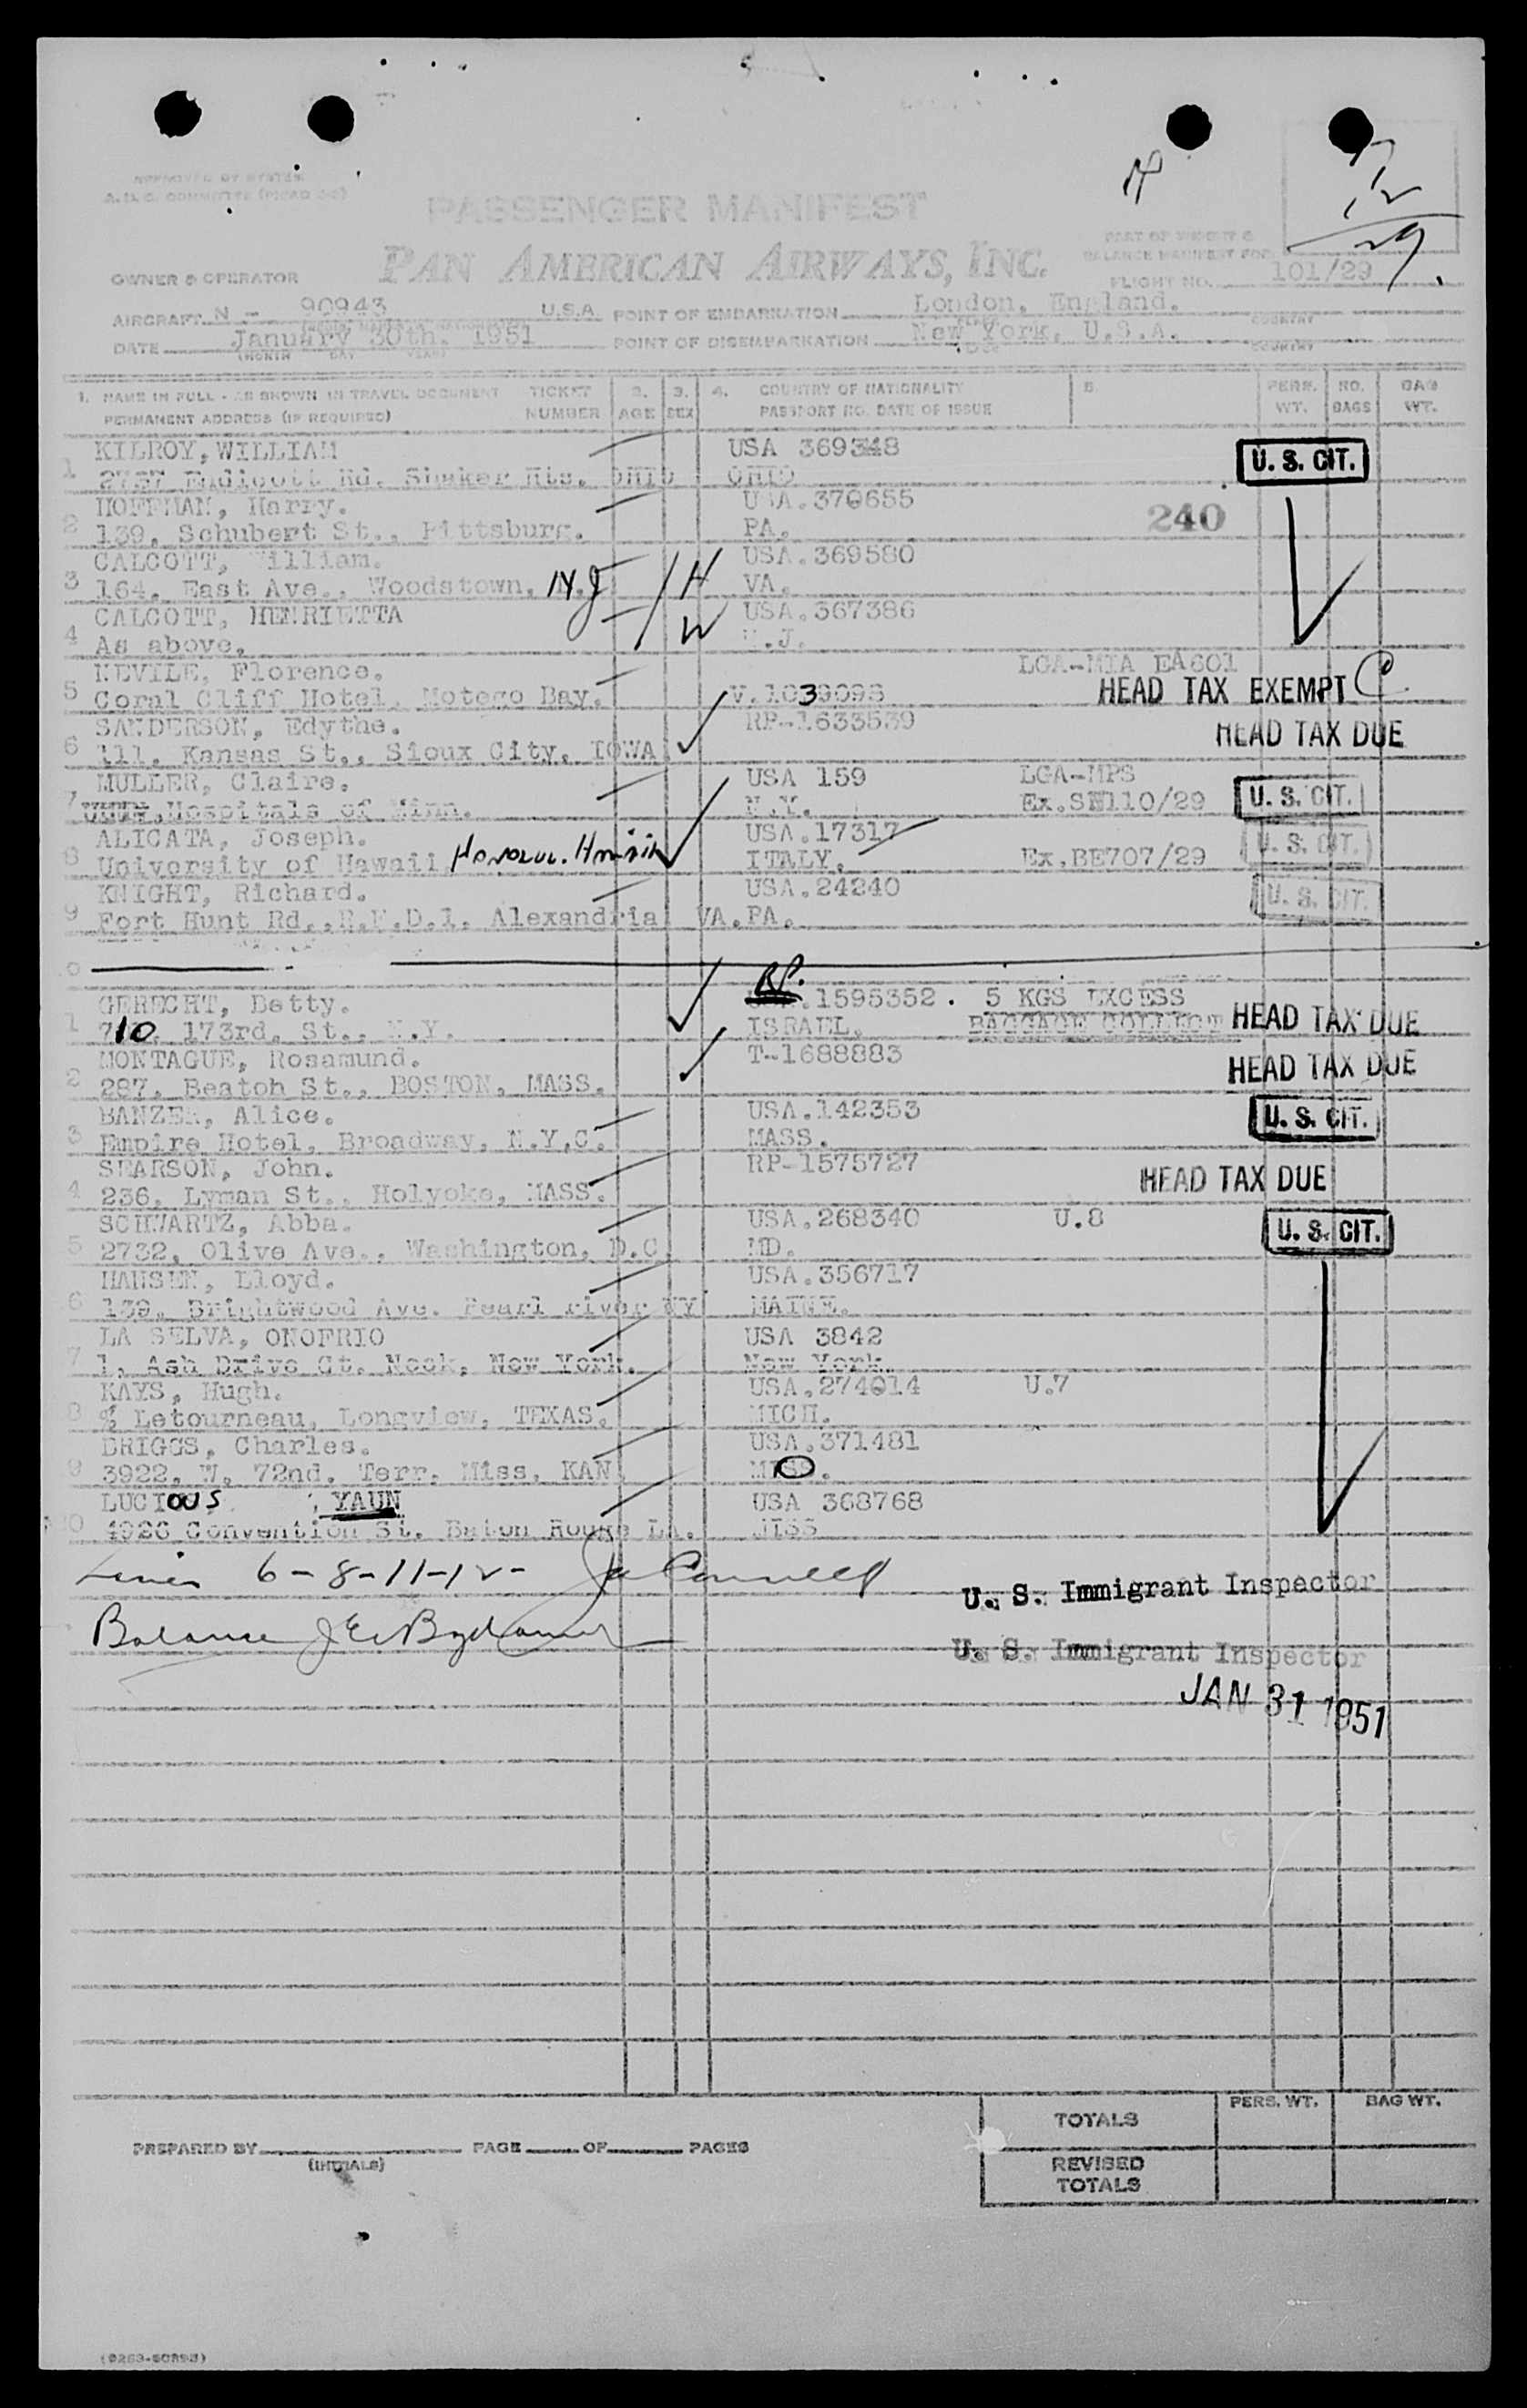 APPROVED BY STATES
A.D.C. COMMITTEE
PASSENGER MANIFEST
PAN AMERICAN AIRWAYS, INC.
PART OF WEIGHT &
BALANCE MANIFEST FOR
OWNER & OPERATOR
FLIGHT NO. 101/29
AIRCRAFT N - 90943 U.S.A. POINT OF EMBARKATION London, England. COUNTRY
DATE January 30th. 1951 POINT OF DISEMBARKATION New York, U.S.A. COUNTRY
(MONTH DAY YEAR)
1. NAME IN FULL - AS SHOWN IN TRAVEL DOCUMENT TICKET 2. 3. 4. COUNTRY OF NATIONALITY 5. PERS. NO. BAG
PERMANENT ADDRESS (IF REQUIRED) NUMBER AGE SEX PASSPORT NO. DATE OF ISSUE WT. BAGS WT.
KILROY, WILLIAM USA 369348 U. S. CIT.
1 2737 Endicott Rd. Shaker Hts. OHIO OHIO
HOFFMAN, Harry. USA.370655
2 139, Schubert St., Pittsburg. PA. 240
CALCOTT, William. USA.369580
3 164, East Ave., Woodstown, N.J. H VA.
CALCOTT, HENRIETTA USA.367386
4 As above. W N.J.
NEVILE, Florence. LGA-MIA EA601
5 Coral Cliff Hotel, Motego Bay. V.1039098 HEAD TAX EXEMPT C
SANDERSON, Edythe. RP-1633539 HEAD TAX DUE
6 111, Kansas St., Sioux City, IOWA
MULLER, Claire. USA 159 LGA-MPS
7 Hospitals of Minn. N.Y. Ex.SN110/29 U. S. CIT.
ALICATA, Joseph. USA.17317 U. S. CIT.
8 University of Hawaii, HONOLUL. ITALY. Ex.BE707/29
KNIGHT, Richard. USA.24240 U. S. CIT.
9 Fort Hunt Rd.,R.F.D.1. Alexandria VA. PA.
GERECHT, Betty. RP. .1595352. 5 KGS EXCESS
1 710. 173rd. St., N.Y. ISRAEL. BAGGAGE COLLECT HEAD TAX DUE
MONTAGUE, Rosamund. T-1688883 HEAD TAX DUE
2 287. Beatoh St., BOSTON, MASS.
BANZER, Alice. USA.142353 U. S. CIT.
3 Empire Hotel, Broadway, N.Y.C. MASS.
SEARSON, John. RP-1575727 HEAD TAX DUE
4 236, Lyman St., Holyoke, MASS.
SCHWARTZ, Abba. USA.268340 U.8 U. S. CIT.
5 2732, Olive Ave., Washington, D.C. MD.
HANSEN, Lloyd. USA.356717
6 139, Brightwood Ave. Pearl river NY MAINE.
LA SELVA, ONOFRIO USA 3842
7 1, Ash Drive Gt. Neck, New York. New York
KAYS, Hugh. USA.274014 U.7
8 % Letourneau, Longview, TEXAS. MICH.
BRIGGS, Charles. USA.371481
9 3922, W. 72nd. Terr. Miss, KAN. MO.
LUCIOUS , YAUN USA 368768
4926 Convention St. Baton Rouge LA. MISS
Lines 6-8-11-12-
U. S. Immigrant Inspector
Balance
U. S. Immigrant Inspector
JAN 31 1951
TOTALS PERS. WT. BAG WT.
PREPARED BY PAGE OF PAGES
(INITIALS)
REVISED
TOTALS